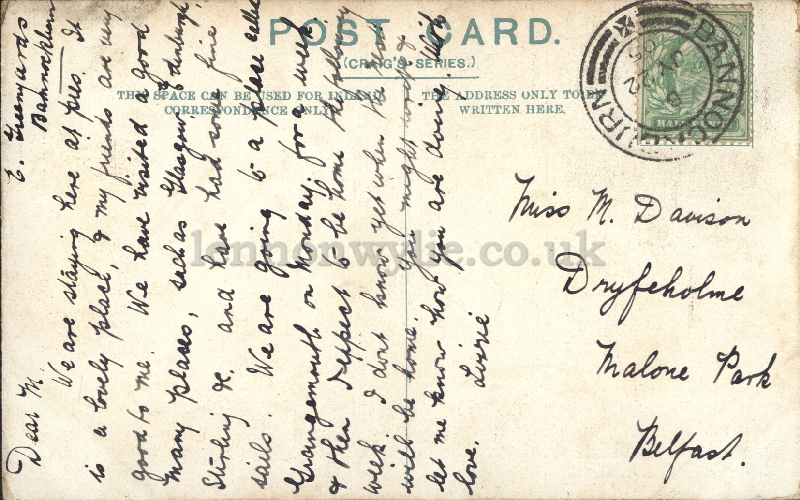 POST CARD.
(CRAIG'S SERIES.)
THIS SPACE CAN BE USED FOR INLAND
CORRESPONDENCE ONLY
THE ADDRESS ONLY TO BE
WRITTEN HERE.
BANNOCKBURN
JY 22
05
HALF
E. Greenyards
Bannockburn
Dear M.
We are staying here at pres. It
is a lovely place, & my friends are very
good to me. We have visited a good
many places, such as Glasgow, Edinburgh,
Stirling &c. and have had some fine
sails. We are going to a place called
Grangemouth on Monday, for a week
& then I expect to be home the following
week. I dont know yet when the rest
will be home. You might write &
let me know how you are doing. With
love. Lizzie
Miss M. Davison
Dryfeholme
Malone Park
Belfast.
lennonwylie.co.uk